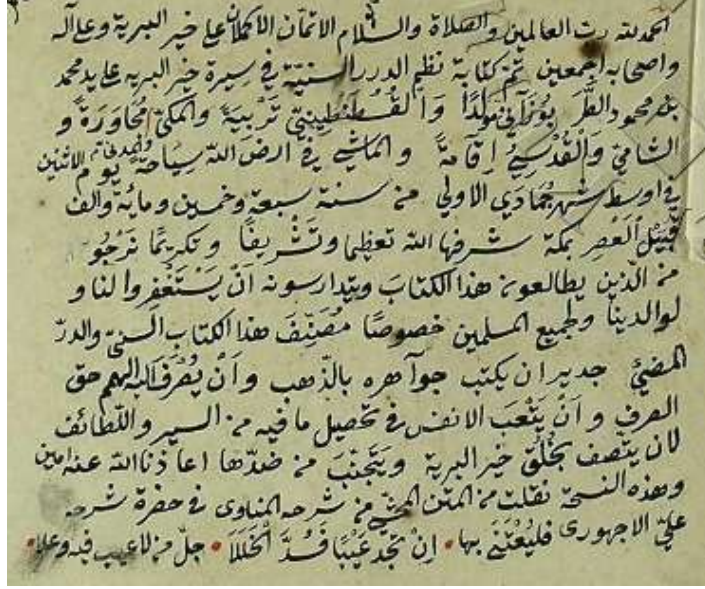 الحمد لله رب العالمين والصلاة والسلام الاتمان الاكملان على خير البرية وعلى آله
واصحابه اجمعين تم كتابة نظم الدرر السنية في سيرة خير البريه على يد محمد
بن محمود الطرَبوزاني مولدًا والقسطنطينيّ تَرْبِيَةً والمكيّ مُجَاوَرَةً و
الشاميّ والقُدْسِيُّ اِقَامةً والماشي في ارض الله سِيَاحةً يوم الاثنين
في اوسط شهر جُمَادَي الاولي من سنة سبعة وخمسين ومائة والف
قُبَيْل العَصْرِ بمكة شرفها الله تعظيما وتَشْرِيفًا وتكريمًا نَرْجُو
من الّذين يطالعون هذا الكتابَ ويتدارسونه اَنْ يَسْتَغْفِروا لنا و
لوالدينا ولجميع المسلمين خصوصًا مُصَنِّفَ هذا الكتابِ السنيّ والدرّ
المضيئ جدير ان يكتب جوآهره بالذّهب واَنْ يُصْرَفَ اليه الهمم حق
الصرف و اَنْ يَتْعَبَ الانفس في تحصيل ما فيه من السير واللّطائف
لان يتّصف بخُلُق خير البرية ويَتَجنّبَ من ضدّها اعاذنا الله عنه امين
وهذه النسخة نقلت من المتن المحشّي من شرحه المناوى في حضرة شرحه
عليّ الاجهورى فليُعْتَنَي بها • اِنْ تجد عَيْبًا فَسُدَّ الخَلَلَا • جلّ من لا عيب فيه وعلا •